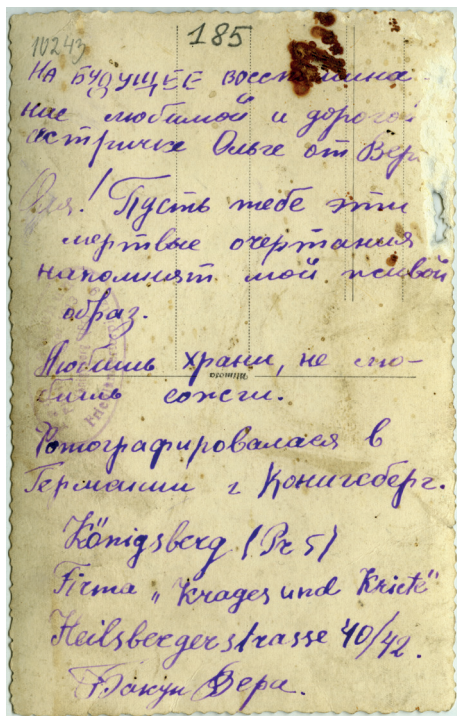 10243
185
На БУДУЩЕЕ воспомина-
ние любимой и дорогой
сестричке Ольге от Веры
Оля! Пусть тебе эти
мертвые очертания
напомнят мой живой
образ.
Любишь храни, не лю-
бишь сожги.
Фотографировалася в
Германии г Конигсберг.
Königsberg (Pr 5)
Firma „Krages und Kriete"
Heilsbergerstrasse 40/42.
Бакун Вера.